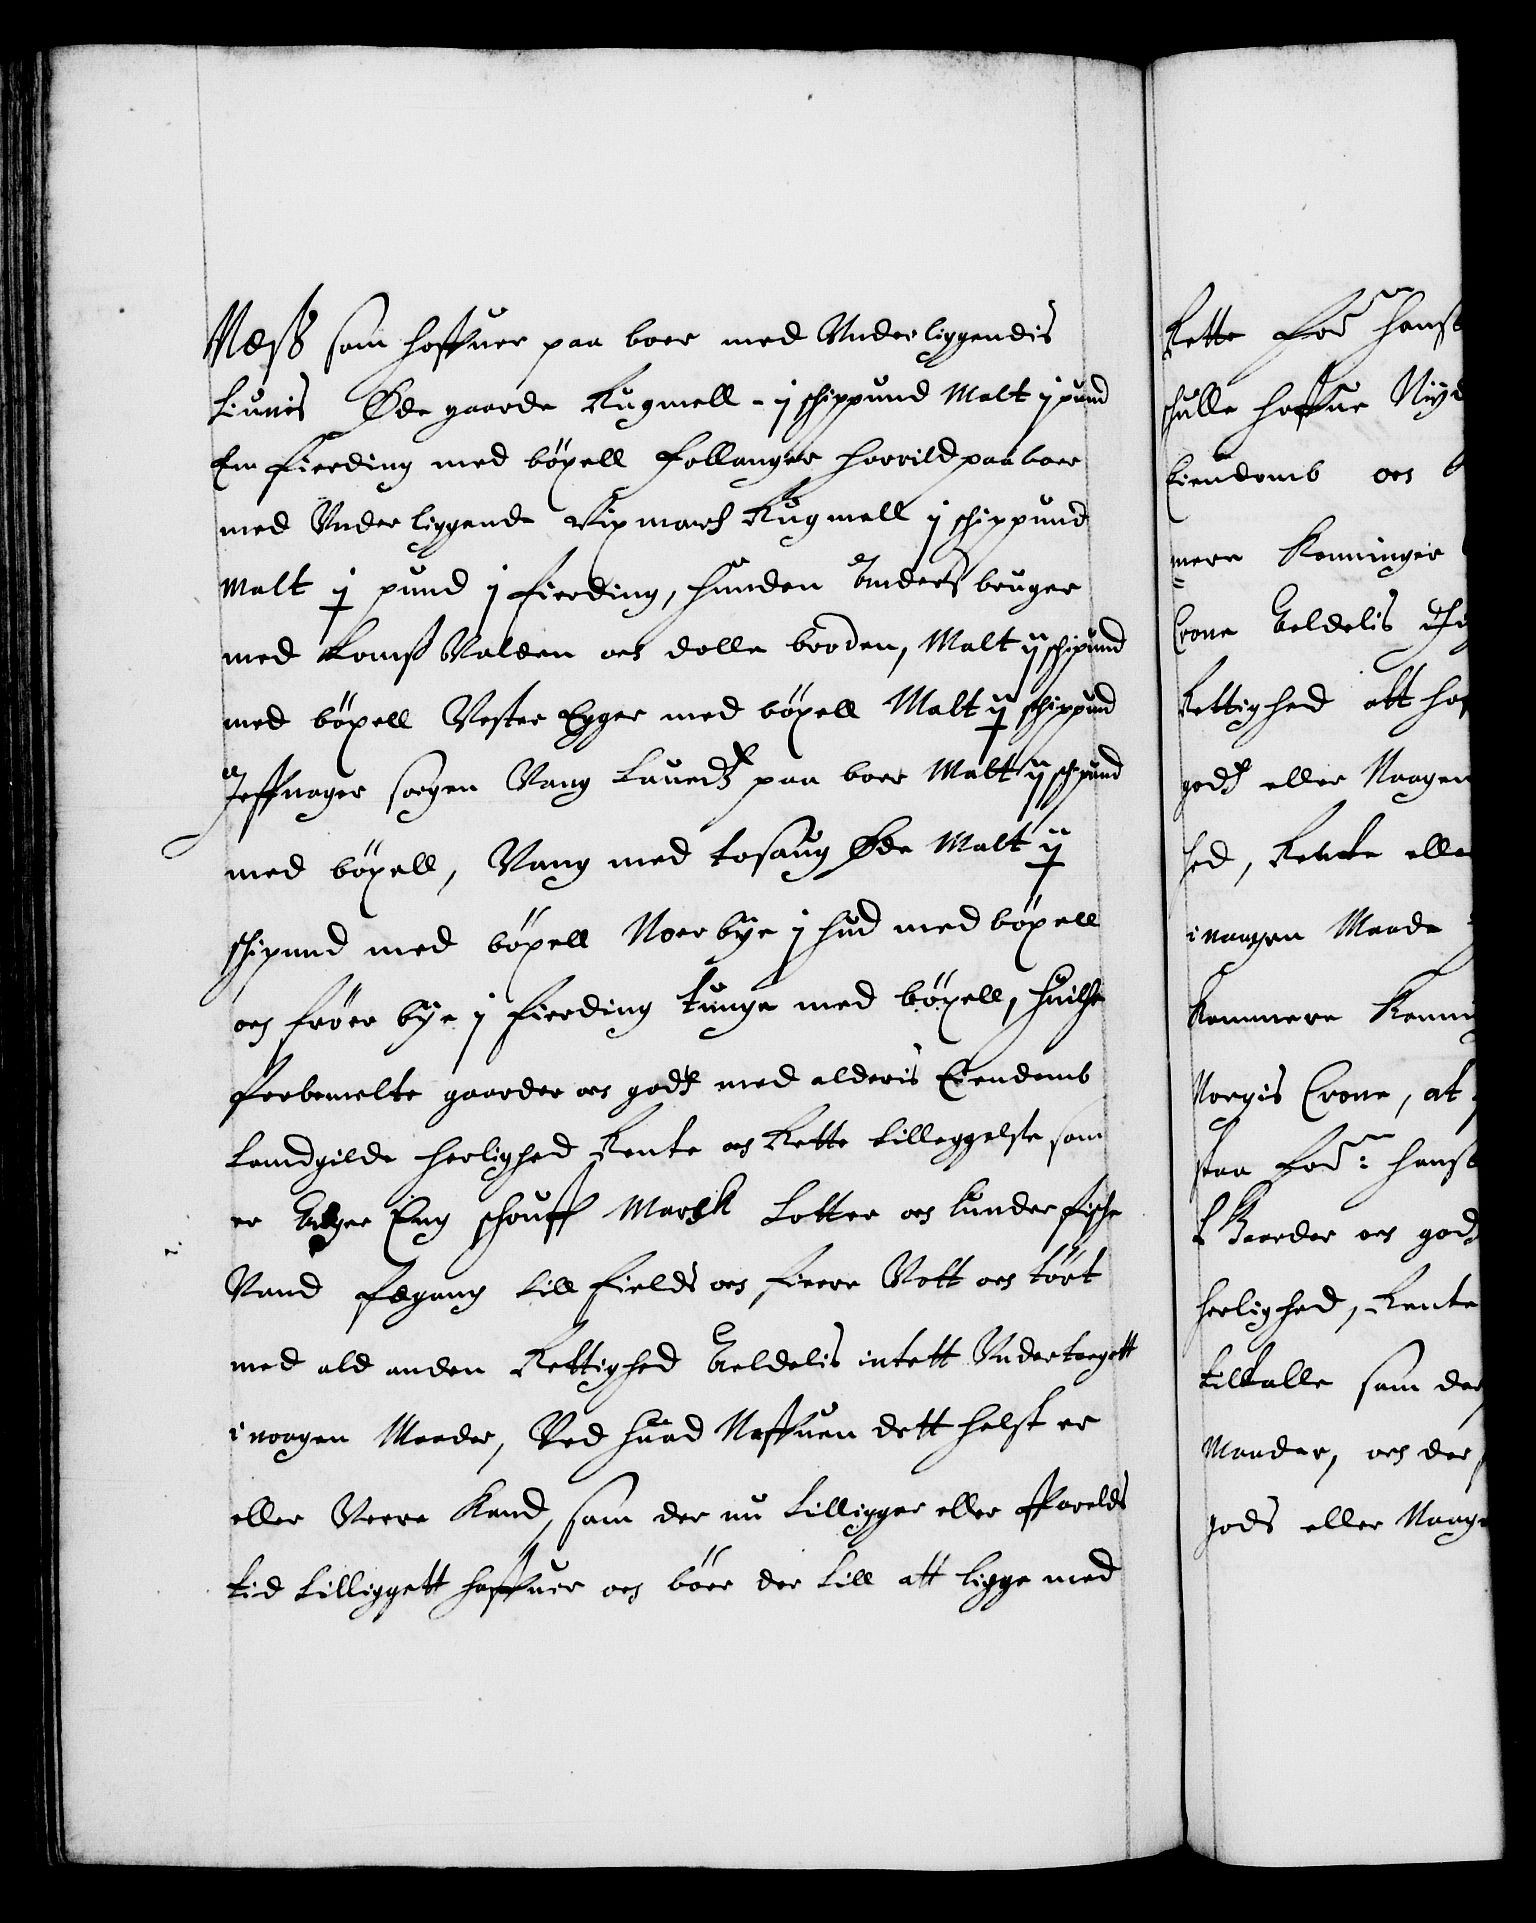 Næss som hoffuer paa boer med Vnderliggendis
Liunis Øde gaarde Rugmell - ij schippund Malt ij pund
Em fierding med böxell follanger horrild paaboer
med Vnderliggende Vixmarch Rugmell ij schippund
Malt ij pund j fierding, hunden Anders bruger
med Lomss Valden och dolle booden, Malt ij schipund
med böxell Vester Egger med böxell Malt ij schippund
Jeffnager sogen Vang Lauedtz paa boer Malt ij schpund
med böxell, Vang med tosaug Øde Malt ij
schipund med böxell Noerbye j hud med böxell
och fröer bye j fierding tunge med böxell, huilche
forbemelte gaarder och godtz med alderis Eiendomb
Landgilde herlighed Rente och Rette tilleggelse som
er Agger Eng schouff March Lotter och Lunder fische
Vand fægang till fields och fierre Vott och tört
med ald anden Rettighed Aeldelis intett Vndertaegett
i nogen Maader, Ved huad Naffuen dett helst er
eller Verre Kand, som der nu tilligger eller aff Arelds
tid tilliggett haffuer och böer der till att ligge med
Rette for hans
schulle haffue Niyd
Eiendomb och
mere Konninger
Crone Aeldelis
Rettighed att haf
godtz eller Naagen
hed, Rente elle
i naagen Maade
Kommere Konni
Norgis Crone, at
paa for: hans
Gaarder och god
herlighed, Rente
tilkalle som der
Maader, och der
gods eller Naag